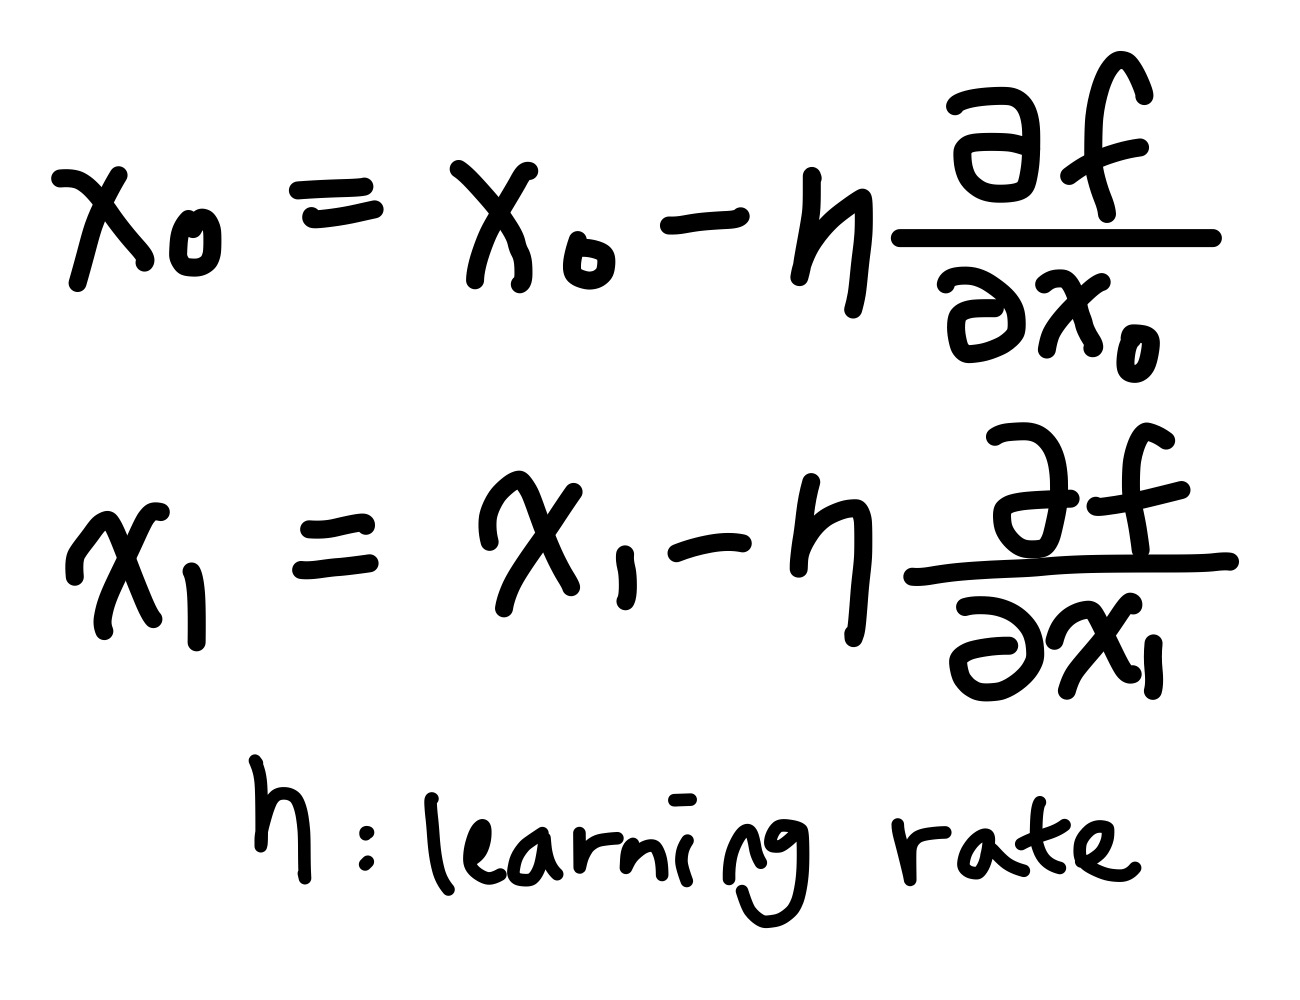 x₀ = x₀ − η ∂f/∂x₀
x₁ = x₁ − η ∂f/∂x₁
η : learning rate